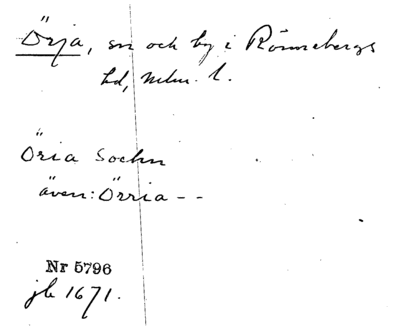 Örja, sn och by i Rönnebergs
hd, Mlm. l.
Öria Sochn
även: Örria - -
Nr 5796
jb 1671.